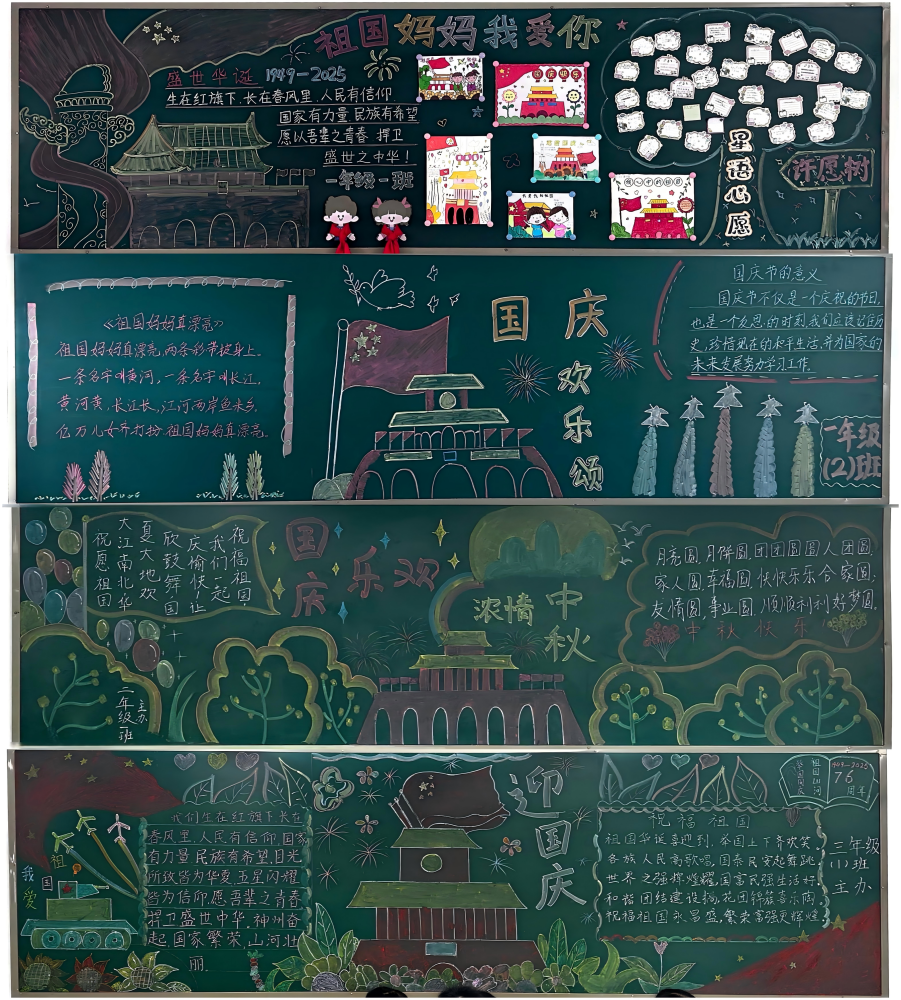 祖国妈妈我爱你
盛世华诞 1949-2025
生在红旗下,长在春风里,人民有信仰
国家有力量 民族有希望
愿以吾辈之青春 捍卫
盛世之中华!
一年级一班
国庆快乐
星语心愿
许愿树
《祖国妈妈真漂亮》
祖国妈妈真漂亮,两条彩带披身上。
一条名字叫黄河,一条名字叫长江,
黄河黄,长江长,江河两岸鱼米乡,
亿万儿女齐打扮,祖国妈妈真漂亮。
国庆
欢乐颂
国庆节的意义
国庆节不仅是一个庆祝的节日,
也是一个反思的时刻,我们应该记住历
史,珍惜现在的和平生活,并为国家的
未来发展努力学习工作。
一年级
(2)班
祝福祖国,
我们一起
庆愉快!让
欣鼓舞国
夏大地欢
大江南北华
祝愿祖国
二年级一班
主办
国庆乐欢
浓情中秋
月亮圆,月饼圆,团团圆圆人团圆,
家人圆,幸福圆,快快乐乐合家圆,
友情圆,事业圆,顺顺利利好梦圆。
中秋快乐
我爱祖国
我们生在红旗下长在
春风里,人民有信仰,国家
有力量,民族有希望,目光
所致皆为华夏,五星闪耀
皆为信仰,愿吾辈之青春
捍卫盛世中华,神州奋
起,国家繁荣,山河壮
丽.
迎国庆
祝福祖国
祖国华诞喜迎到,举国上下齐欢笑
各族人民高歌唱,国泰民安起舞跳
世界之强辉煌耀,国富民强生活好
和谐团结建设搞,花团锦簇喜乐陶
祝福祖国永昌盛,繁荣富强更辉煌
1949-2025
76
周年
三年级
(1)班
主办